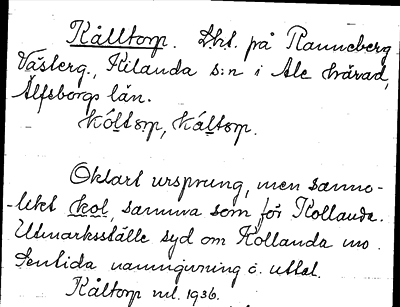 Kålltorp. Lht. på Ranneberg
Västerg., Kilanda s:n i Ale härad,
Älfsborgs län.
Kóltorp, Káltorp.
Oklart ursprung, men sanno-
-likt kol, samma som för Kollanda.
Utmarksställe syd om Kollanda mo.
Sentida namngivning o. uttal.
Kåltorp utt. 1936.